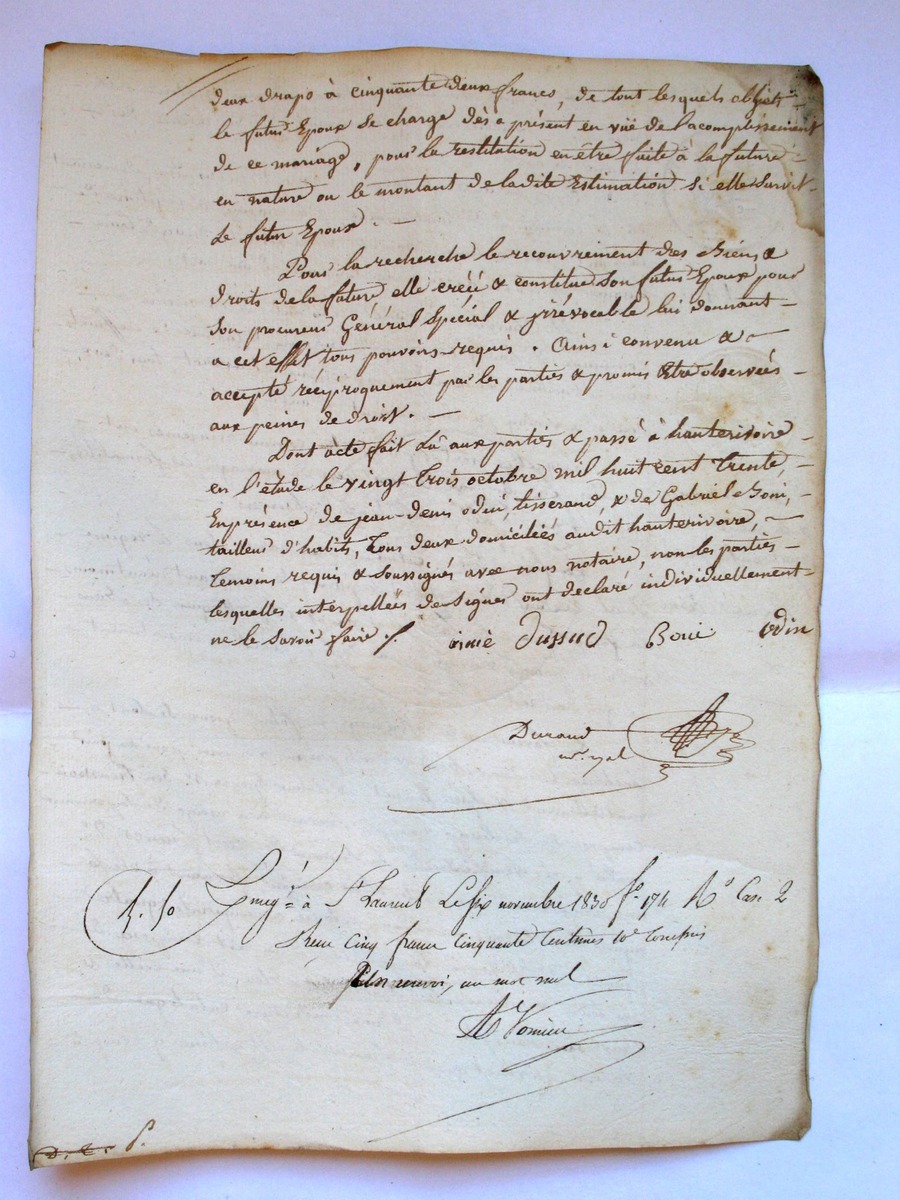 deux drapo à cinquante deux francs, de tout lesquels objets
le futur Epoux se charge dès a présent en vüe de l'acomplissement
de ce mariage, pour la restitution en être faite à la future
en nature ou le montant de ladite Estimation si elle survit
le futur Epoux. —
Pour la recherche le recouvrement des Biens &
droits de la future elle créé & constitue son futur Epoux pour
son procureur Général Spécial & irrévocable lui donnant —
a cet effet tous pouvoirs requis. Ainsi convenu & —
accepté réciproquement par les parties & promis être observées —
aux peines de droit. —
Dont acte fait lû aux parties & passé à hauterivoire —
en l'étude le vingt Trois octobre mil huit cent Trente, —
En présence de jean-denis odin, tisserand, & de Gabriel Boni, —
tailleur d'habits, Tous deux domiciliés audit hauterivoire, —
témoins requis & soussignés avec nous notaire, non les parties —
lesquelles interpellées de signer ont déclaré individuellement —
ne le savoir faire ./.
aimé Dussud Boni Odin
Durand
nre. royal
5. 50 Enregé. à St Laurent Le six novembre 1830 fo. 174 Ro Case 2
Reçu cinq francs cinquante Centimes 10e Compris
Un renvoi, un mot nul